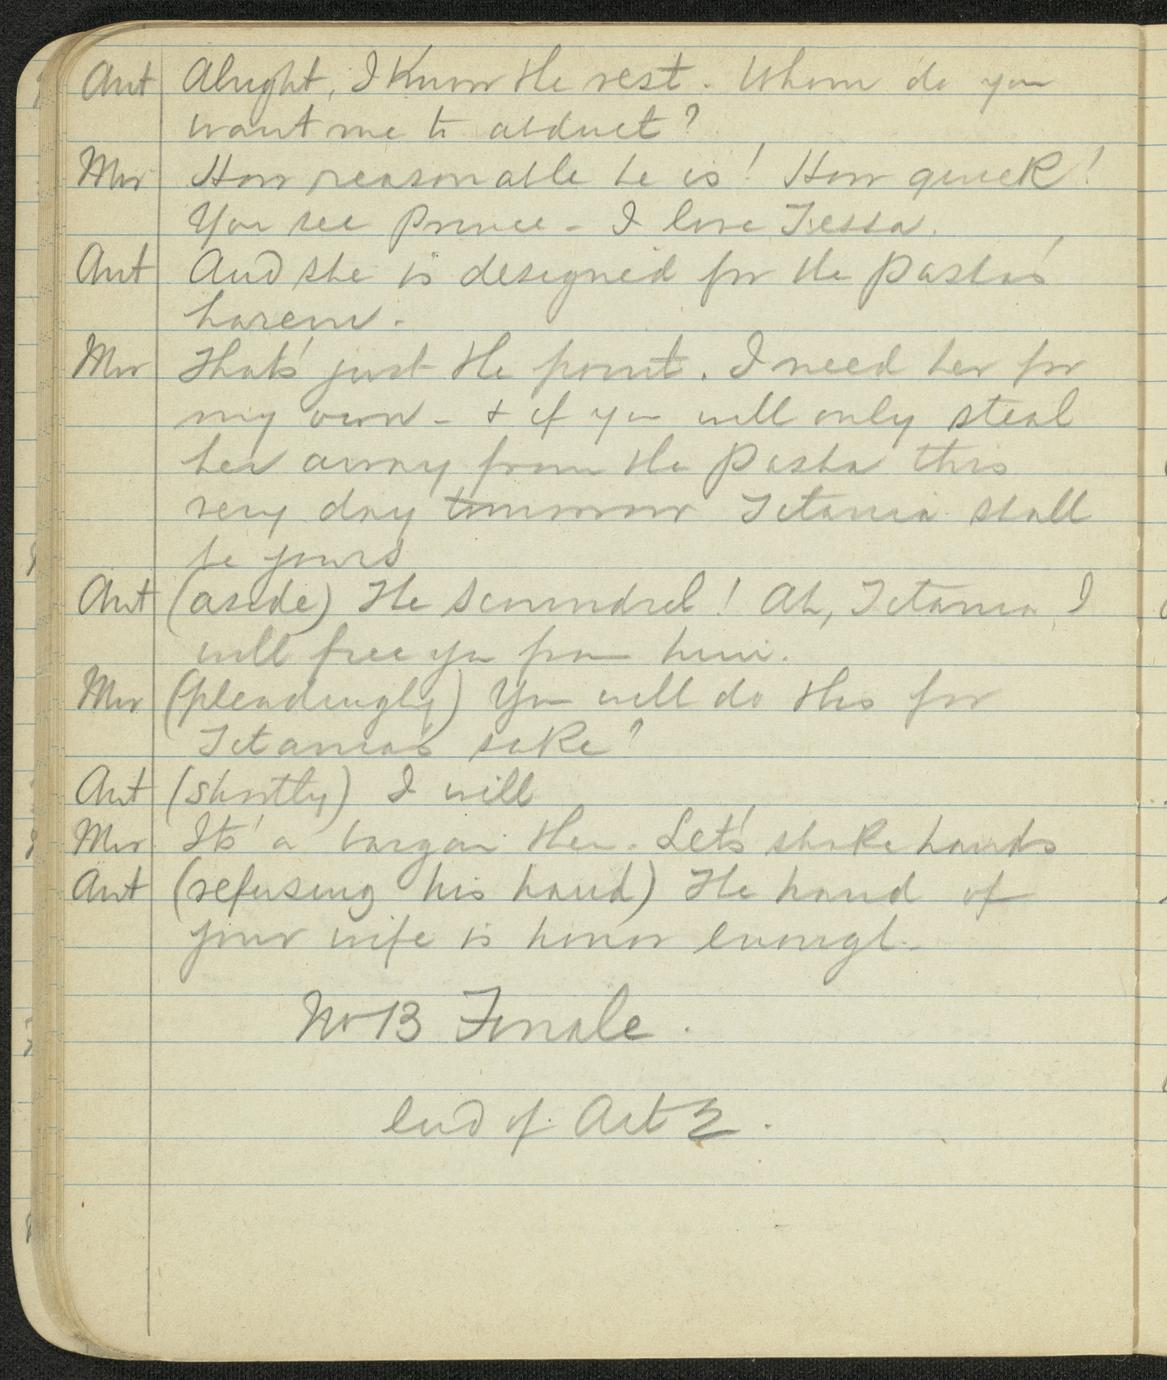 Ant Alright, I know the rest. Whom do you
want me to abduct?
Mir How reasonable he is! How quick!
You see Prince - I love Tessa.
Ant And she is designed for the Pasha's
harem.
Mir That's just the point. I need her for
my own - & if you will only steal
her away from the Pasha this
very day tomorrow Titania shall
be yours
Ant (aside) The Scoundrel! Ah, Titania, I
will free you from him.
Mir (pleadingly) You will do this for
Titania's sake?
Ant (shortly) I will
Mir It's a bargain then. Let's shake hands
Ant (refusing his hand) The hand of
your wife is honor enough.
No 13 Finale.
End of Act 2.